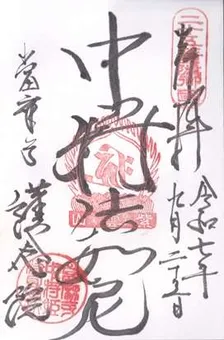 奉拝
令和七年
九月二十五日
中将法如尼
當麻寺
護念院